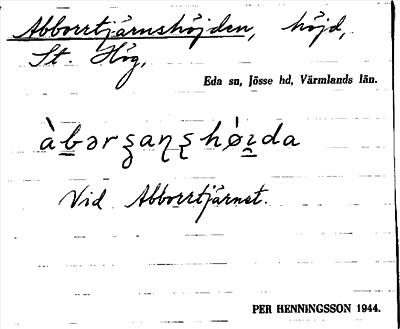 Abborrtjärnshöjden, höjd,
St. Hög,
Eda sn, Jösse hd, Värmlands län.
Vid Abborrtjärnet.
PER HENNINGSSON 1944.